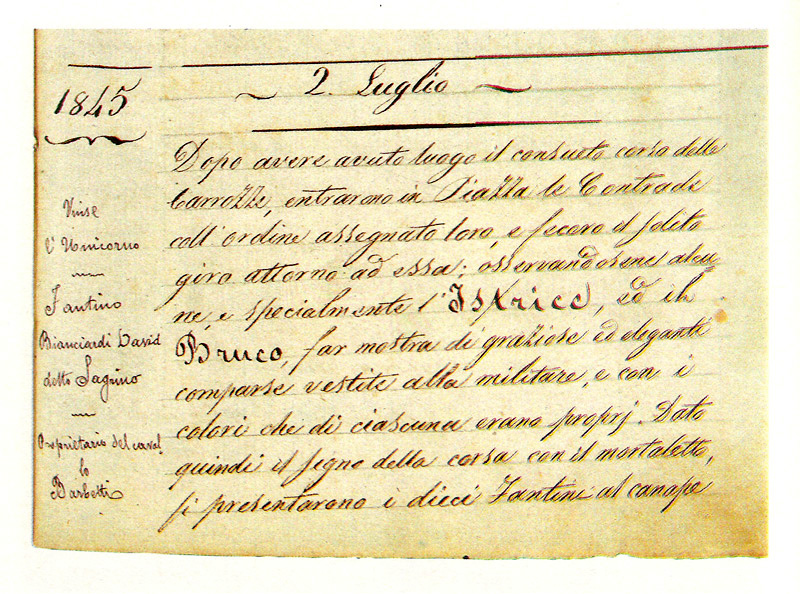 1845
2. Luglio
Dopo avere avuto luogo il consueto corso delle
Carrozze, entrarono in Piazza le Contrade
coll'ordine assegnato loro, e fecero il solito
giro attorno ad essa; osservandosene alcu
ne, e specialmente l'Istrice, ed il
Bruco, far mostra di graziose ed eleganti
comparse vestite alla militare, e con i
colori che di ciascuna erano proprj. Dato
quindi il segno della corsa con il mortaletto,
si presentarono i dieci Fantini al canape
Vinse
l'Unicorno
Fantino
Bianciardi David
detto
Proprietario del caval
lo
Barbetti